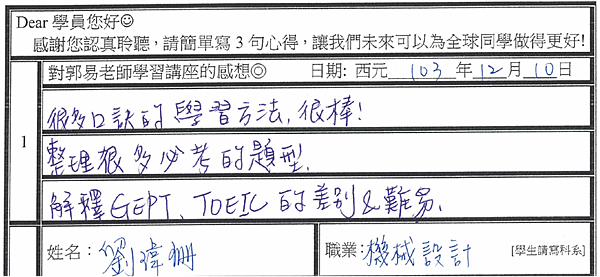 Dear 學員您好☺
感謝您認真聆聽，請簡單寫3句心得，讓我們未來可以為全球同學做得更好!
對郭易老師學習講座的感想◎ 日期: 西元 103 年 12 月 10 日
1
很多口訣的學習方法, 很棒!
整理很多必考的題型.
解釋GEPT、TOEIC 的差別&難易.
姓名： 劉瑋珊 職業: 機械設計 [學生請寫科系]